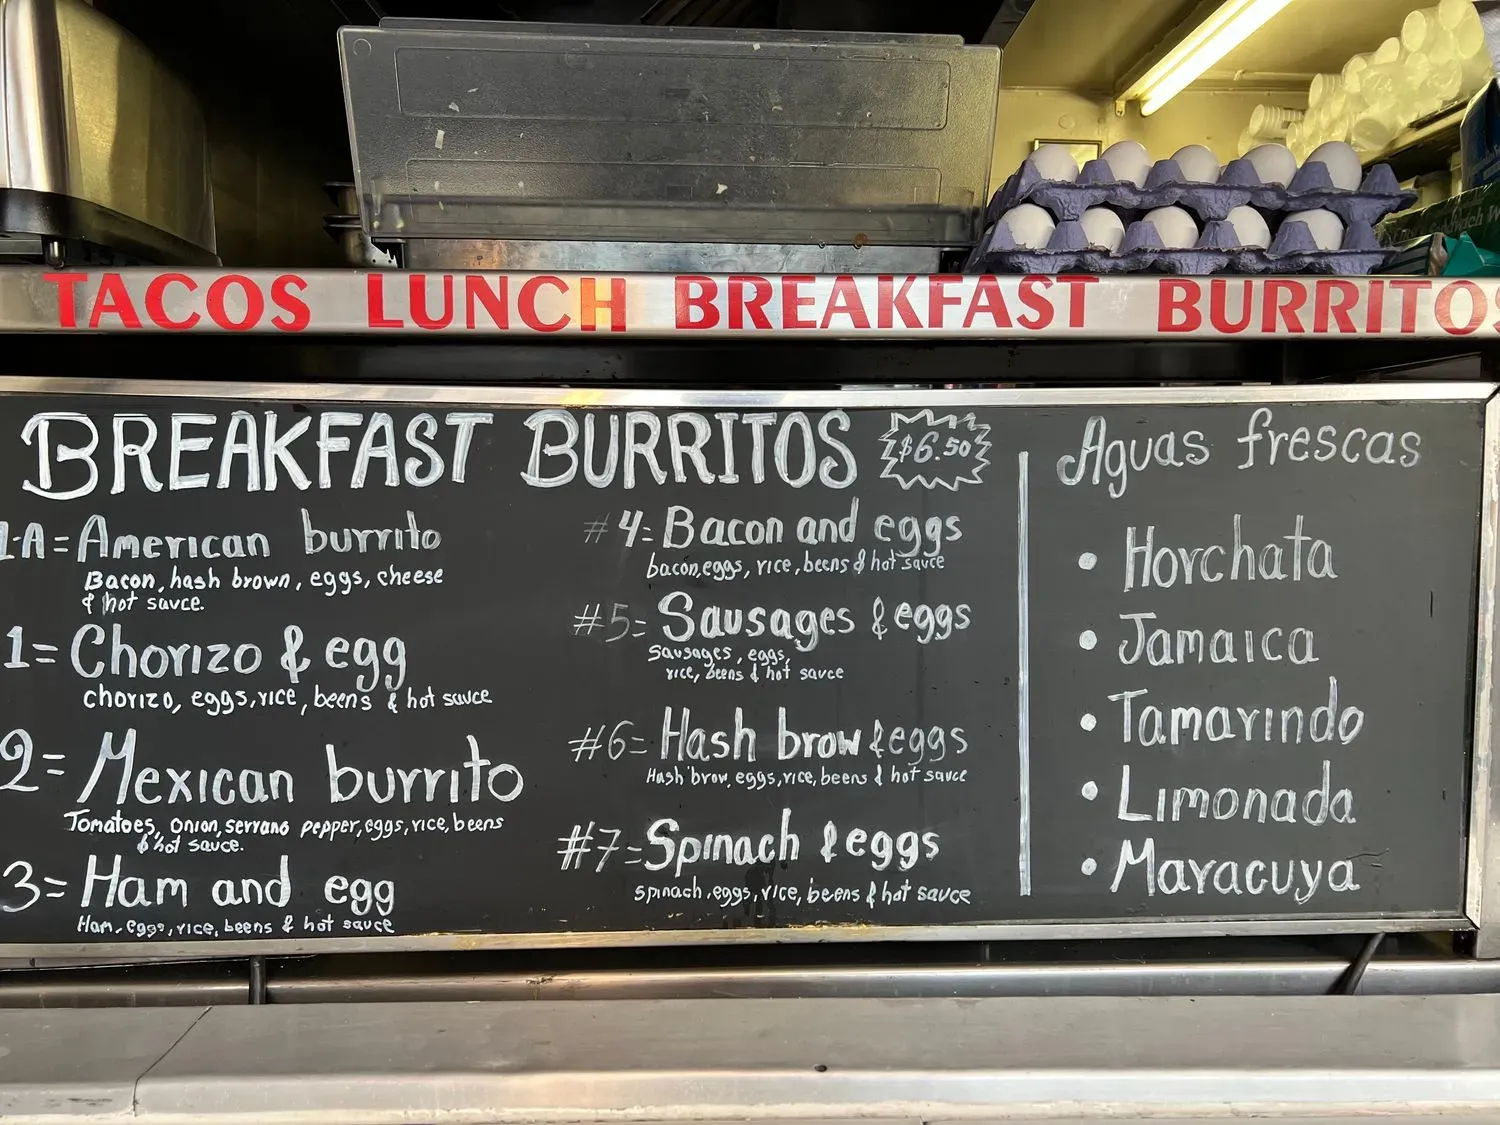 TACOS LUNCH BREAKFAST BURRITOS
BREAKFAST BURRITOS $6.50
1-A= American burrito
Bacon, hash brown, eggs, cheese
& hot savce.
1= Chorizo & egg
chorizo, eggs, rice, beens & hot savce
2= Mexican burrito
Tomatoes, onion, serrano pepper, eggs, rice, beens
& hot sauce.
3= Ham and egg
Ham, eggs, rice, beens & hot savce
#4= Bacon and eggs
bacon, eggs, rice, beens & hot savce
#5= Sausages & eggs
Sausages, eggs,
rice, beens & hot savce
#6= Hash brow & eggs
Hash brow, eggs, rice, beens & hot savce
#7= Spinach & eggs
spinach, eggs, rice, beens & hot savce
Aguas frescas
• Horchata
• Jamaica
• Tamarindo
• Limonada
• Maracuya